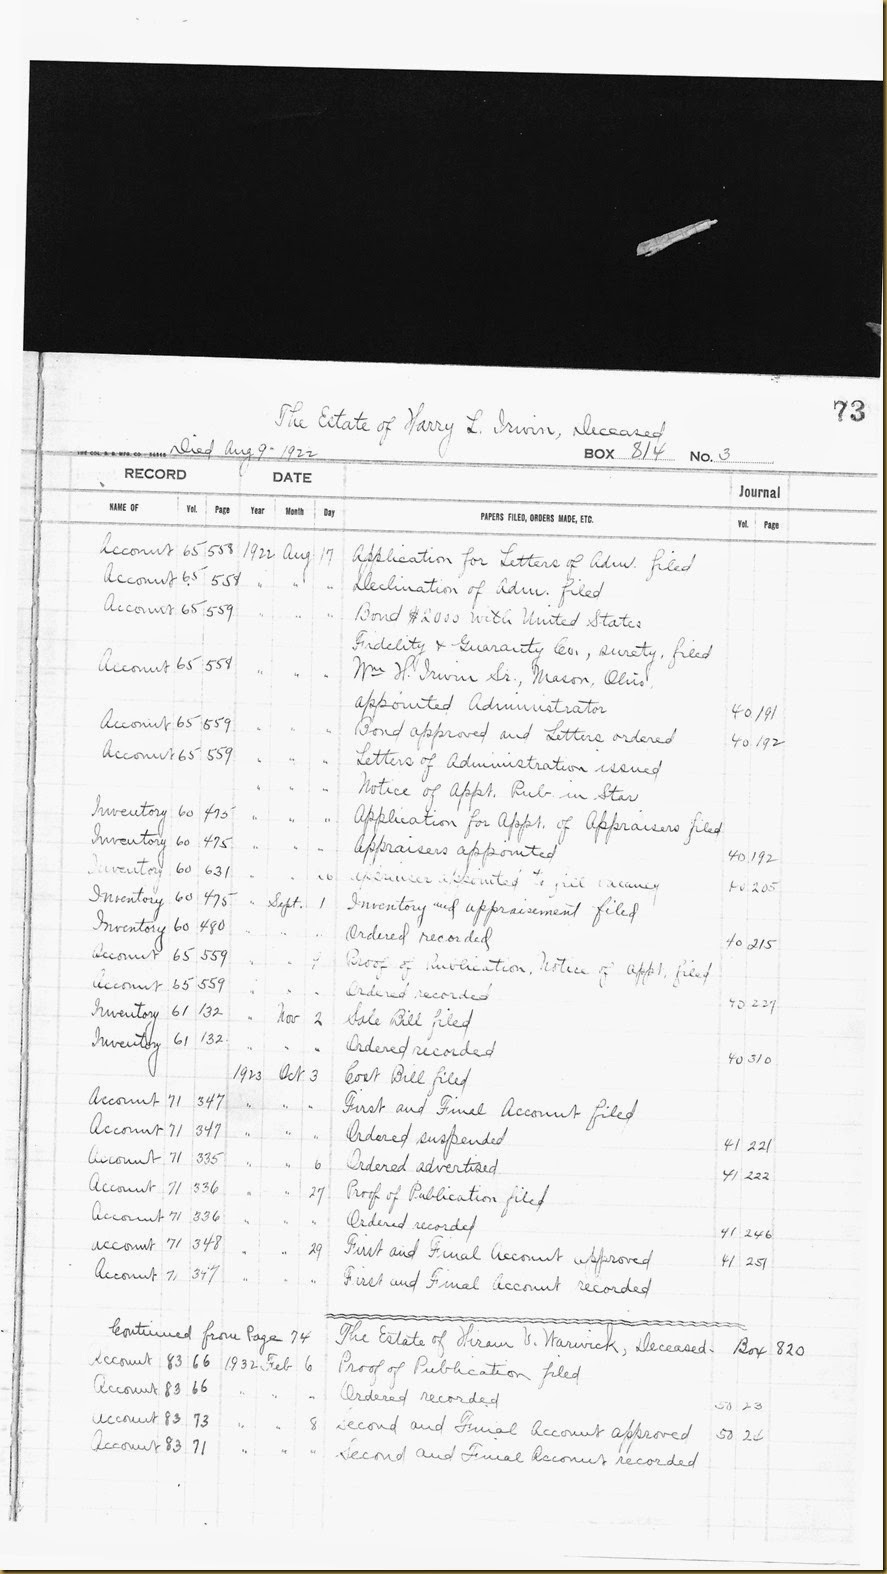 73
The Estate of Harry L. Irwin, Deceased
Died Aug 9 - 1922 BOX 814 No. 3
RECORD DATE Journal
NAME OF Vol. Page Year Month Day PAPERS FILED, ORDERS MADE, ETC. Vol. Page
Account 65 558 1922 Aug 17 Application for Letters of Adm. filed
Account 65 558 " " " Declination of Adm. filed
Account 65 559 " " " Bond $2000 with United States
Fidelity & Guaranty Co., surety, filed
Account 65 558 " " " Wm H. Irwin Sr., Mason, Ohio,
appointed Administrator 40 191
Account 65 559 " " " Bond approved and Letters ordered 40 192
Account 65 559 " " " Letters of Administration issued
" " " Notice of Appt. Pub. in Star
Inventory 60 475 " " " Application for Appt. of Appraisers filed
Inventory 60 475 " " " Appraisers appointed 40 192
Inventory 60 631 " " Appraiser appointed to fill vacancy 40 205
Inventory 60 475 " Sept. 1 Inventory and appraisement filed
Inventory 60 480 " " " Ordered recorded 40 215
Account 65 559 " " Proof of Publication, Notice of Appt. filed
Account 65 559 " " " Ordered recorded 40 227
Inventory 61 132 " Nov 2 Sale Bill filed
Inventory 61 132 " " " Ordered recorded 40 310
1923 Oct 3 Cost Bill filed
Account 71 347 " " " First and Final Account filed
Account 71 347 " " " Ordered suspended 41 221
Account 71 335 " " 6 Ordered advertised 41 222
Account 71 336 " " 27 Proof of Publication filed
Account 71 336 " " " Ordered recorded 41 246
Account 71 348 " " 29 First and Final Account approved 41 251
Account 71 347 " " " First and Final Account recorded
Continued from Page 74 The Estate of Hiram V. Warwick, Deceased - Box 820
Account 83 66 1932 Feb 6 Proof of Publication filed
Account 83 66 " " " Ordered recorded 50 23
Account 83 73 " " 8 Second and Final Account approved 50
Account 83 71 " " " Second and Final Account recorded